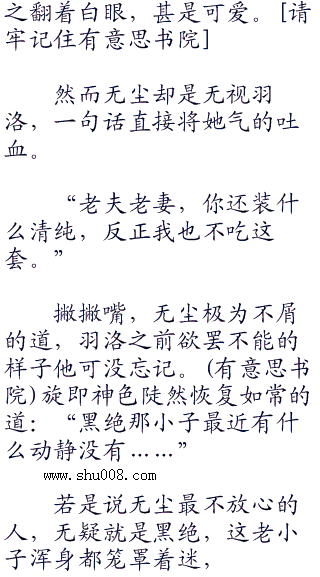 之翻着白眼，甚是可爱。[请
牢记住有意思书院]
然而无尘却是无视羽
洛，一句话直接将她气的吐
血。
“老夫老妻，你还装什
么清纯，反正我也不吃这
套。”
撇撇嘴，无尘极为不屑
的道，羽洛之前欲罢不能的
样子他可没忘记。(有意思书
院)旋即神色陡然恢复如常的
道：“黑绝那小子最近有什
么动静没有……”
www.shu008.com
若是说无尘最不放心的
人，无疑就是黑绝，这老小
子浑身都笼罩着迷，